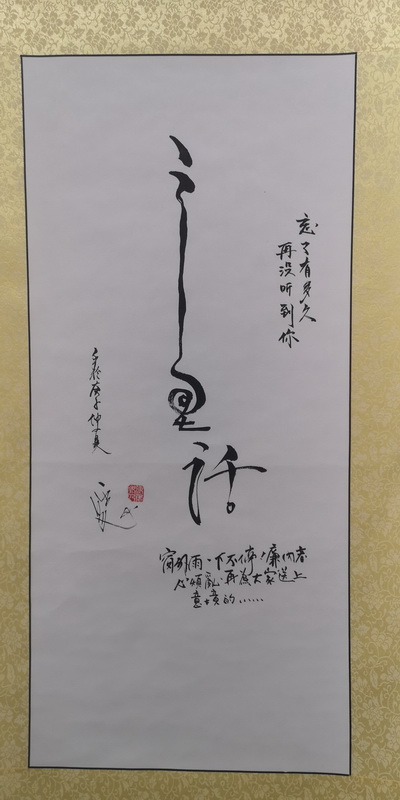 忘了有多久
再没听到你
童话
窗外雨下不停，廉内
心烦亂 再為大家送上
意境的……
於庚子仲夏